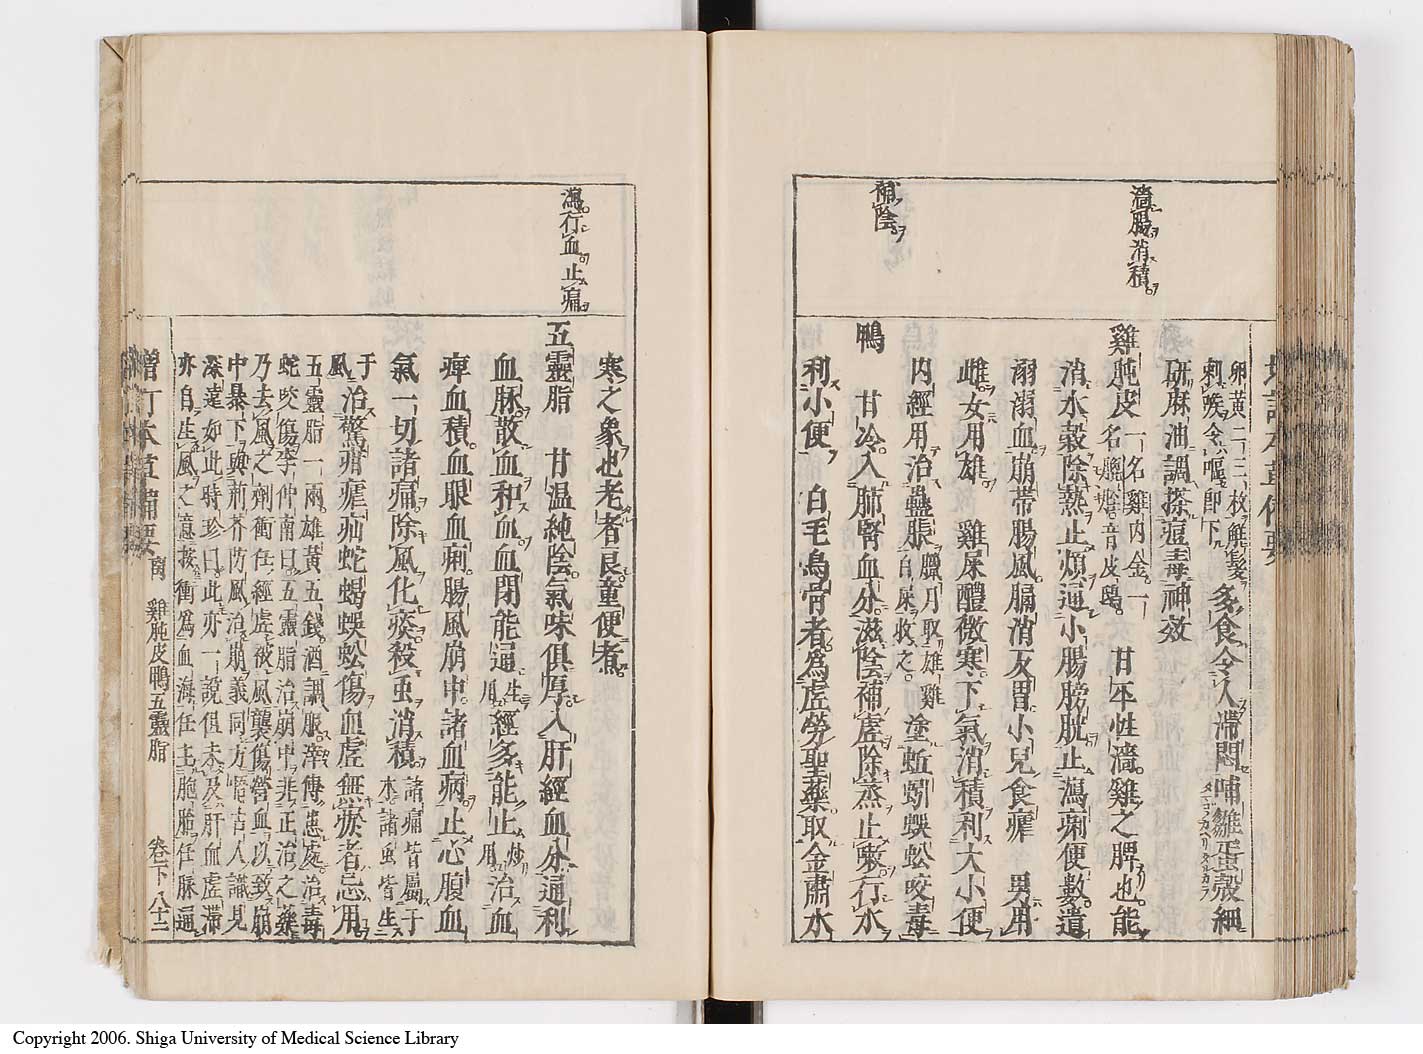 濇腸消積
補陰
卵黃二三枚解髮
刺喉令嘔卽下
多食令人滯悶哺雛蛋殻細
研麻油調搽痘毒神效
雞肫皮 一名雞内金一
名膍胵音皮鴟
甘平性濇雞之脾也能
消水穀除熱止煩通小腸膀胱止瀉痢便數遺
溺溺血崩帶腸風膈消反胃小兒食瘧 男用
雌女用雄 雞屎醴微寒下氣消積利大小便
内經用治蠱脹 臘月取雄雞
白屎收之
塗蚯蚓蜈蚣咬毒
鴨 甘冷入肺腎血分滋陰補虛除蒸止嗽行水
利小便 白毛烏骨者爲虛勞聖藥取金肅水
瀉行血止痛
寒之象也老者良童便煮
五靈脂 甘溫純陰氣味俱厚入肝經血分通利
血脉散血和血血閉能通 生
用
經多能止 炒
用
治血
痺血積血眼血痢腸風崩中諸血病止心腹血
氣一切諸痛除風化痰殺虫消積 諸痛皆屬于
木諸虫皆生
于
風
治驚疳瘧疝蛇蝎蜈蚣傷血虛無瘀者忌用
五靈脂一兩雄黃五錢酒調服滓傅患處治毒
蛇咬傷李仲南曰五靈脂治崩中非正治之藥
乃去風之劑衝任經虛被風襲傷營血以致崩
中暴下與荊芥防風治崩義同方悟古人識見
深遠如此時珍曰此亦一說但未及肝血虛滯
亦自生風之意按衝爲血海任主胞胎任脉通
增訂本草備要 禽 雞肫皮鴨五靈脂 卷下 八十二
Copyright 2006. Shiga University of Medical Science Library